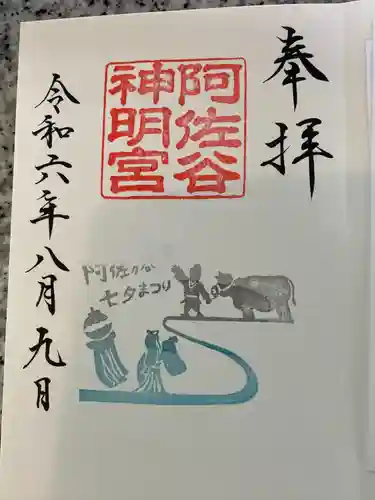 奉拝
阿佐谷
神明宮
阿佐ヶ谷
七夕まつり
令和六年八月九月